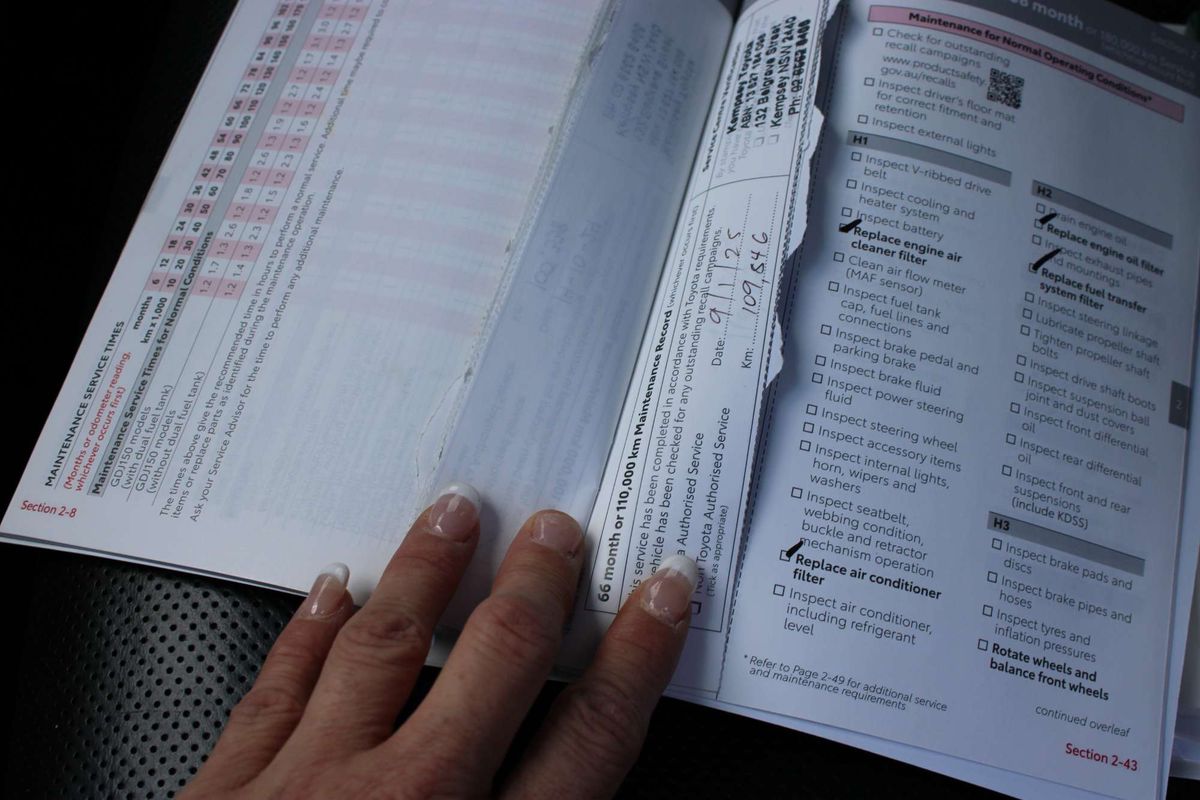 MAINTENANCE SERVICE TIMES
(Months or odometer reading,
whichever occurs first)
months 6 12 18 24 30 36 42 48 54 60 66 72 78 84 90 96
km x 1,000 10 20 30 40 50 60 70 80 90 100 110 120 130 140 150 160
Maintenance Service Times for Normal Conditions
GDJ150 models
(with dual fuel tank)
GDJ150 models
(without dual fuel tank)
The times above give the recommended time in hours to perform a normal service. Additional time maybe required to
items or replace parts as identified during the maintenance operation.
Ask your Service Advisor for the time to perform any additional maintenance.
Section 2-8
66 month or 110,000 km Maintenance Record (whichever occurs first)
service has been completed in accordance with Toyota requirements.
vehicle has been checked for any outstanding recall campaigns.
Authorised Service
Non Toyota Authorised Service
(Tick as appropriate)
Date: 9/1/25
Km: 109,846
Kempsey Toyota
ABN: 13 627 184 098
132 Belgrave Street
Kempsey NSW 2440
Ph: 02 6562 8488
month or 180,000 km Service
Maintenance for Normal Operating Conditions*
Check for outstanding
recall campaigns
www.productsafety.
gov.au/recalls
Inspect driver's floor mat
for correct fitment and
retention
Inspect external lights
H1
Inspect V-ribbed drive
belt
Inspect cooling and
heater system
Inspect battery
Replace engine air
cleaner filter
Clean air flow meter
(MAF sensor)
Inspect fuel tank
cap, fuel lines and
connections
Inspect brake pedal and
parking brake
Inspect brake fluid
Inspect power steering
fluid
Inspect steering wheel
Inspect accessory items
Inspect internal lights,
horn, wipers and
washers
Inspect seatbelt,
webbing condition,
buckle and retractor
mechanism operation
Replace air conditioner
filter
Inspect air conditioner,
including refrigerant
level
* Refer to Page 2-49 for additional service
and maintenance requirements
H2
Drain engine oil
Replace engine oil filter
Inspect exhaust pipes
and mountings
Replace fuel transfer
system filter
Inspect steering linkage
Lubricate propeller shaft
Tighten propeller shaft
bolts
Inspect drive shaft boots
Inspect suspension ball
joint and dust covers
Inspect front differential
oil
Inspect rear differential
oil
Inspect front and rear
suspensions
(include KDSS)
H3
Inspect brake pads and
discs
Inspect brake pipes and
hoses
Inspect tyres and
inflation pressures
Rotate wheels and
balance front wheels
continued overleaf
2
Section 2-43